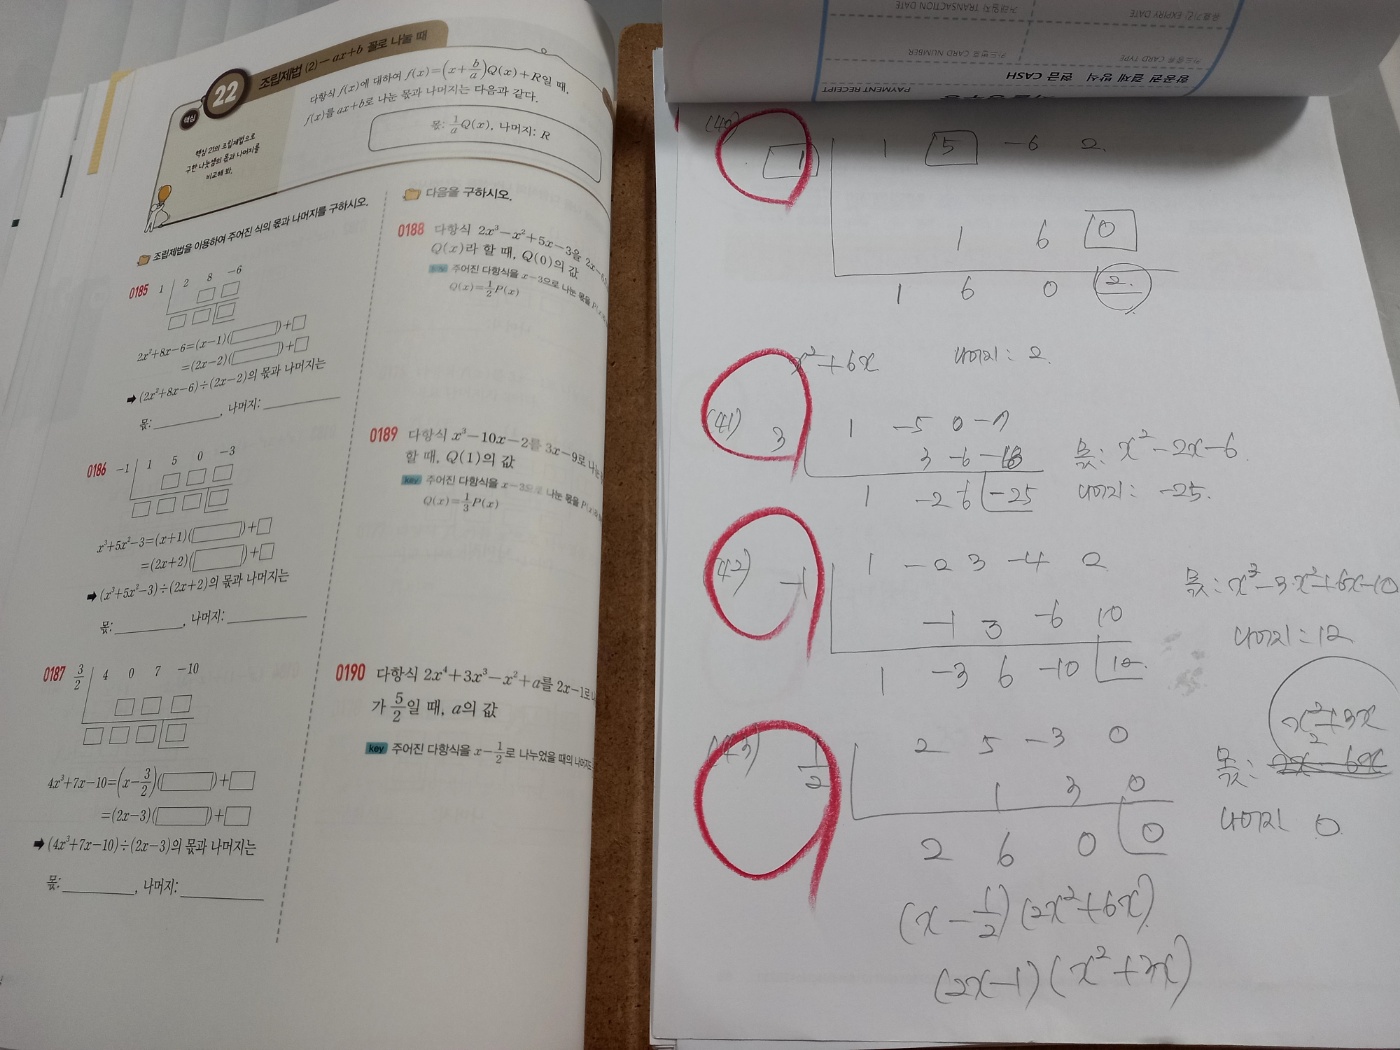 핵심 22 조립제법 (2) - ax+b 꼴로 나눌 때
핵심 21의 조립제법으로
구한 나눗셈의 몫과 나머지를
비교해 봐.
다항식 f(x)에 대하여 f(x)=(x+b/a)Q(x)+R일 때,
f(x)를 ax+b로 나눈 몫과 나머지는 다음과 같다.
몫: 1/a Q(x), 나머지: R
조립제법을 이용하여 주어진 식의 몫과 나머지를 구하시오.
0185 1 2 8 -6
2x²+8x-6=(x-1)( )+□
=(2x-2)( )+□
➡ (2x²+8x-6)÷(2x-2)의 몫과 나머지는
몫: , 나머지:
0186 -1 1 5 0 -3
x³+5x²-3=(x+1)( )+□
=(2x+2)( )+□
➡ (x³+5x²-3)÷(2x+2)의 몫과 나머지는
몫: , 나머지:
0187 3/2 4 0 7 -10
4x³+7x-10=(x-3/2)( )+□
=(2x-3)( )+□
➡ (4x³+7x-10)÷(2x-3)의 몫과 나머지는
몫: , 나머지:
다음을 구하시오.
0188 다항식 2x³-x²+5x-3을
Q(x)라 할 때, Q(0)의 값
key 주어진 다항식을 x-3으로 나눈 몫을
Q(x)=1/2 P(x)
0189 다항식 x³-10x-2를 3x-9로
할 때, Q(1)의 값
key 주어진 다항식을 x-3으로 나눈 몫을
Q(x)=1/3 P(x)
0190 다항식 2x⁴+3x³-x²+a를 2x-1로
가 5/2일 때, a의 값
key 주어진 다항식을 x-1/2로 나누었을 때의
PAYMENT RECEIPT
항공권 결제 방식 현금 CASH
카드종류 CARD TYPE 카드번호 CARD NUMBER
유효기간 EXPIRY DATE 거래일자 TRANSACTION DATE
(40) 1 1 5 -6 2
1 6 0
1 6 0 2
x²+6x 나머지: 2
(41) 3 1 -5 0 -7
3 -6 -18
1 -2 -6 -25
몫: x²-2x-6
나머지: -25.
(42) -1 1 -2 3 -4 2
-1 3 -6 10
1 -3 6 -10 12
몫: x³-3x²+6x-10
나머지: 12
(43) 1/2 2 5 -3 0
1 3 0
2 6 0 0
x²+3x
몫:
나머지 0
(x-1/2)(2x²+6x)
(2x-1)(x²+3x)